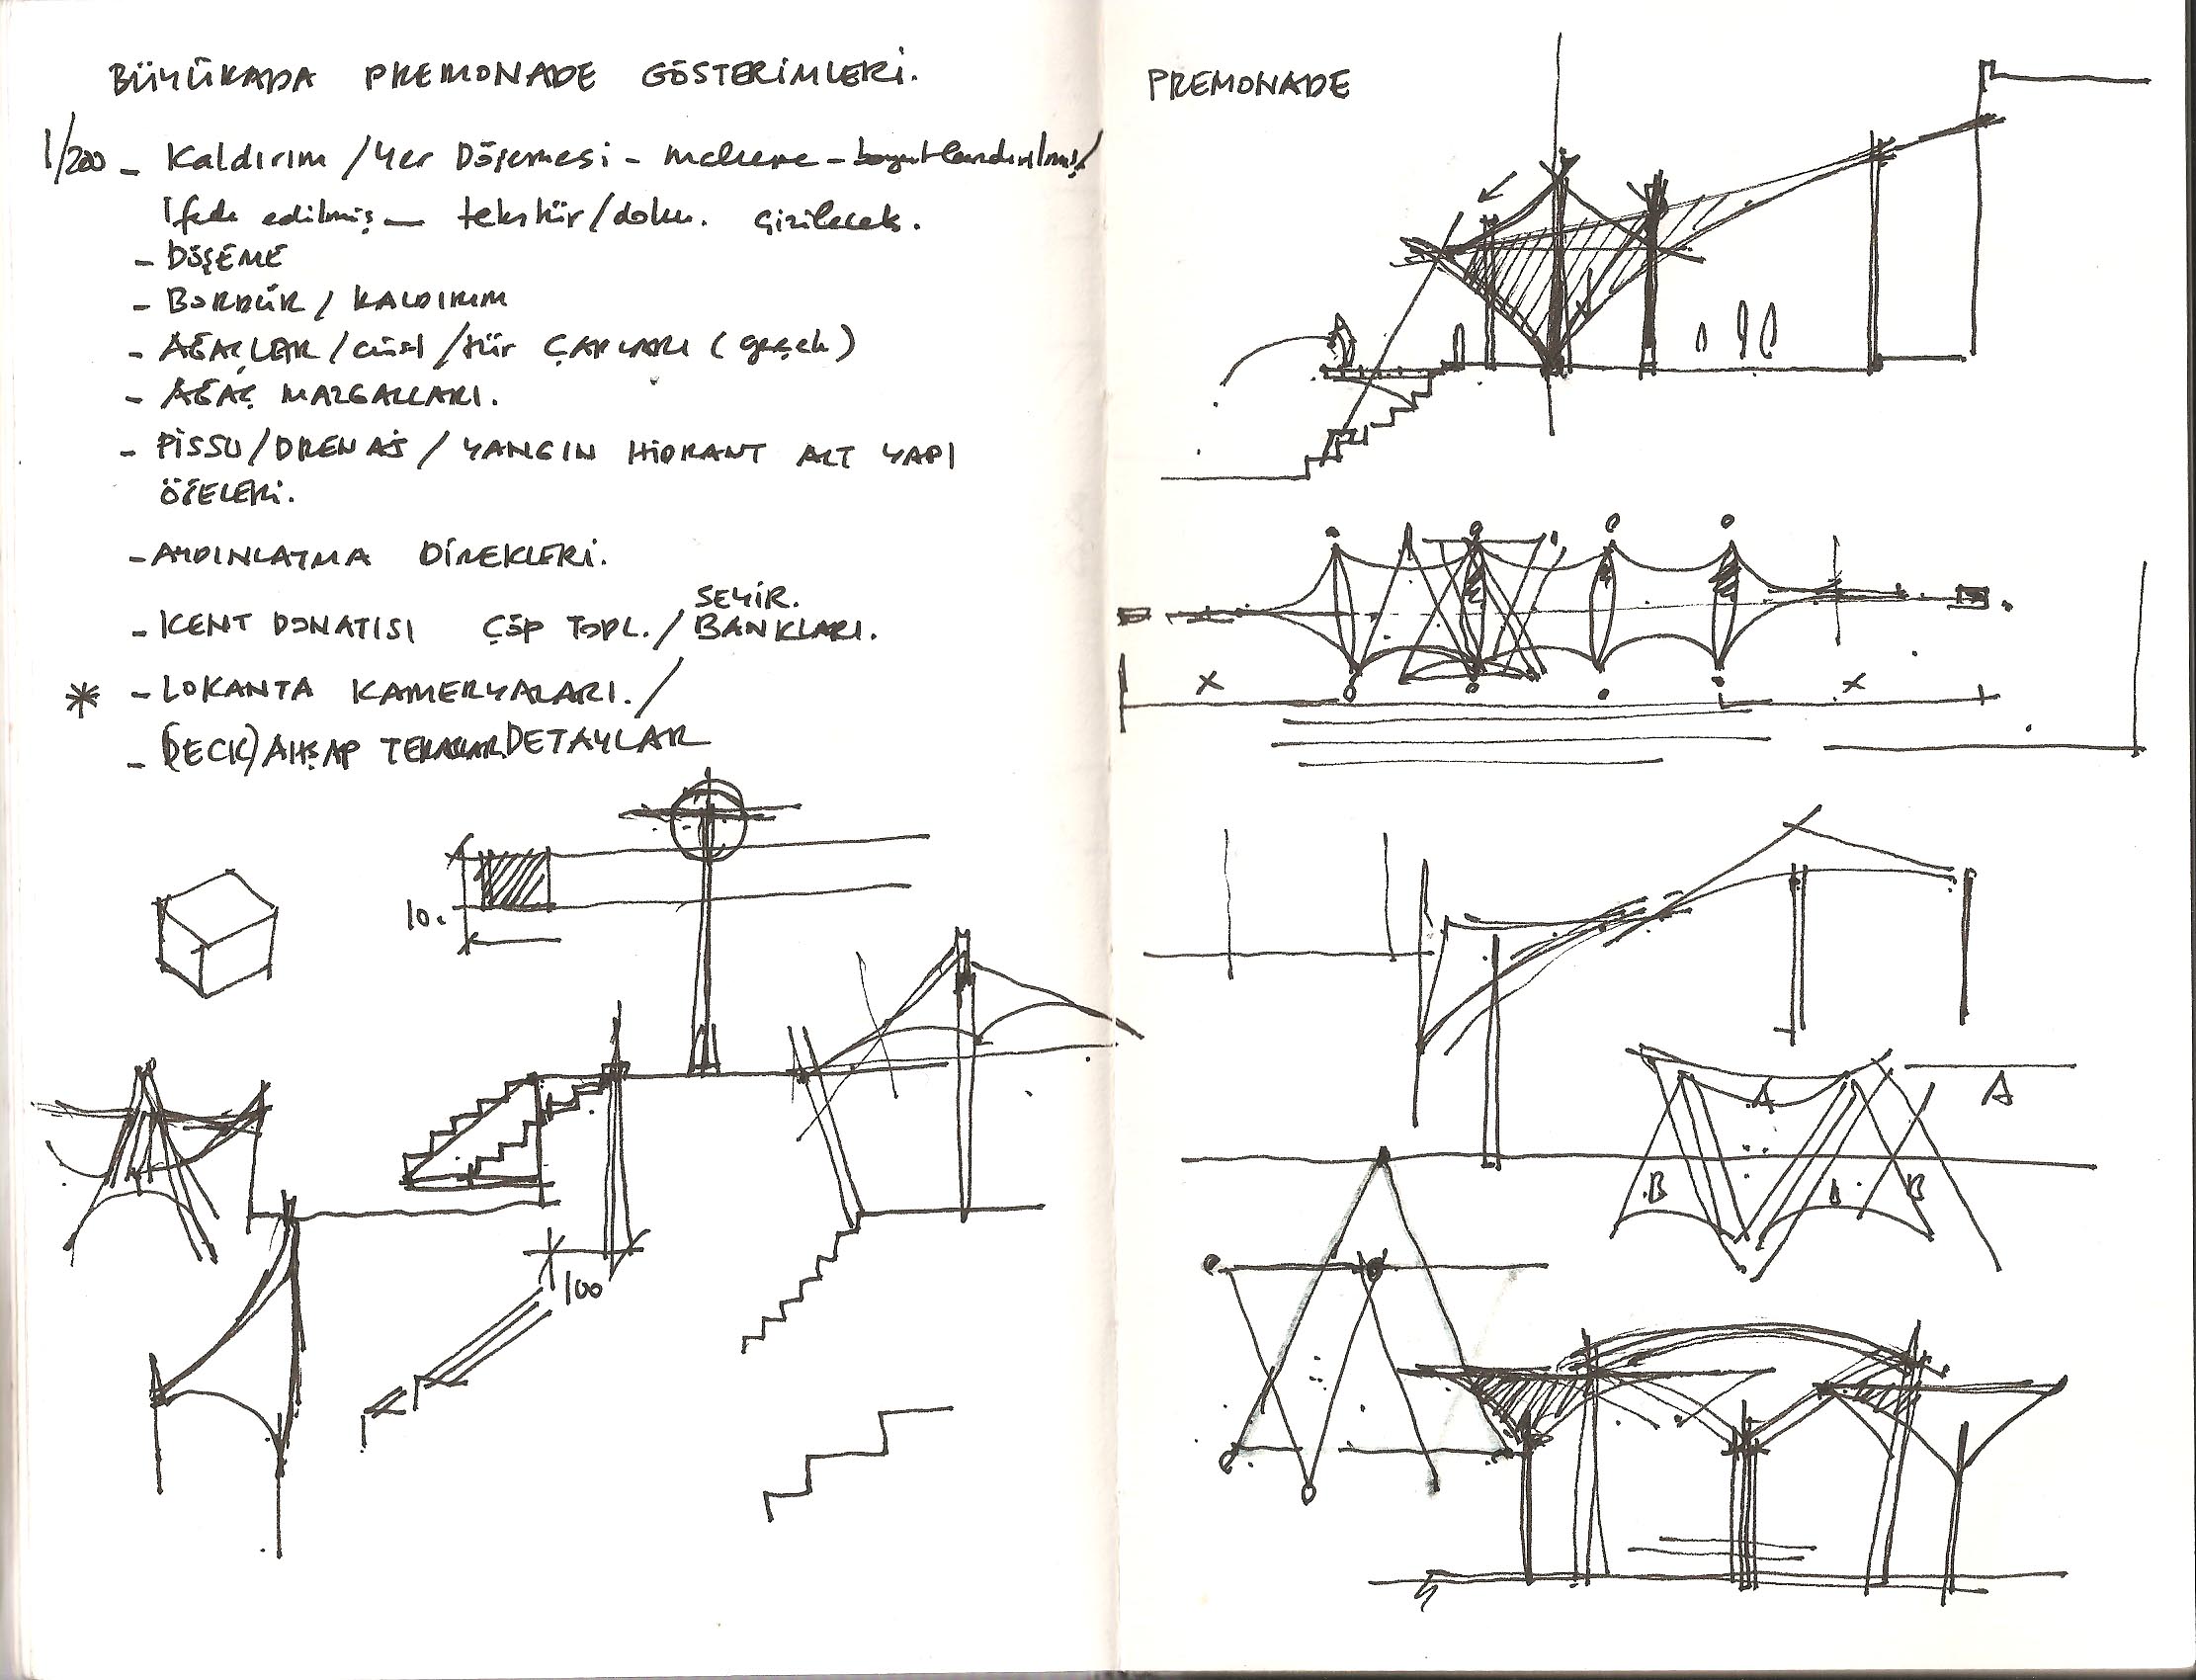 BÜYÜKADA PREMONADE GÖSTERİMLERİ.
1/200 - Kaldırım / Yer Döşemesi - malzeme - boyutlandırılmış/
ifade edilmiş - tekstür/doku. çizilecek.
- DÖŞEME
- BORDÜR / KALDIRIM
- AĞAÇLAR / cinsi / tür ÇAPLARI (gerçek)
- AĞAÇ MAZGALLARI.
- PİSSU / DRENAJ / YANGIN HİDRANT ALT YAPI
ÖĞELERİ.
- AYDINLATMA DİREKLERİ.
- KENT DONATISI ÇÖP TOPL. / SEYİR. BANKLARI.
* - LOKANTA KAMERYALARI. /
- (DECK) AHŞAP TERASLAR DETAYLAR
10.
100
PREMONADE
X X
A A
B B